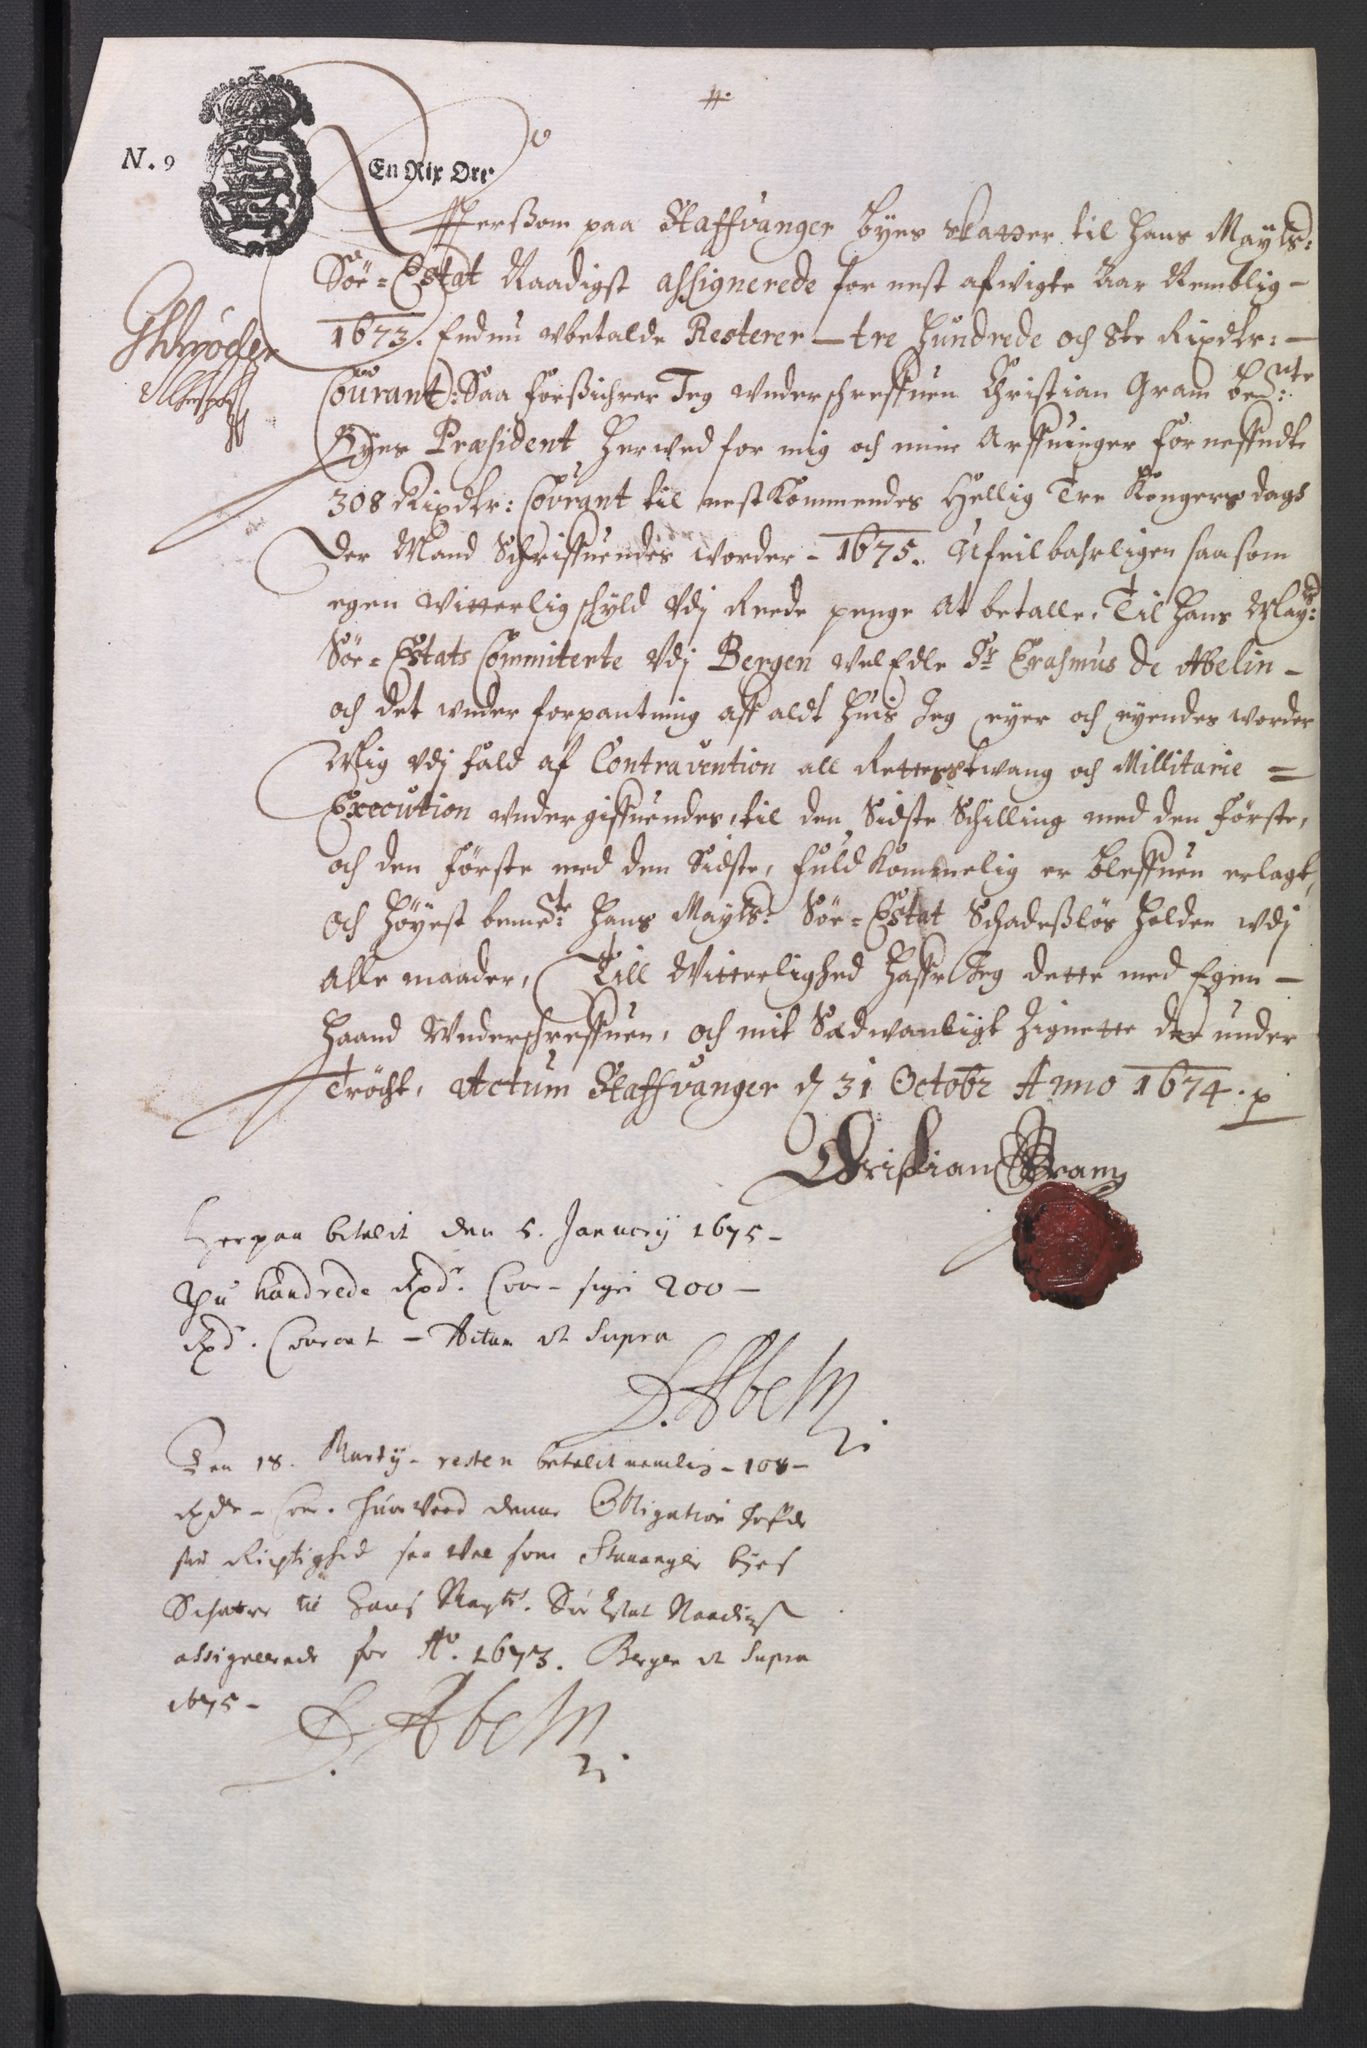 N. 9
En Rix Ort
Effterßom paa Staffvanger Byes skatter til Hans Mayts:
Söe=Estat Naadigst assignerede for nest afwigte Aar Nemblig -
1673. Endnu ubetalde Resterer - tre hundrede och otte Rixdlr: -
Courant: Saa forßichrer Jeg underschreffuen Christian Gram bemte:
Byes Præsident herved for mig och mine Arffuinger forneffndte
308 Rixdlr: Courant til nestkommendes Hellig Tre Kongers dags
Der Mand Schriffuendes worder - 1675. Ufeilbahrligen saasom
egen witterlig schyld udj Reede penge at betalle, Til Hans May:
Söe=Estats Committerte Udj Bergen wel Edle Sr. Erasmus de Abelin -
och det under forpantning aff aldt huis Jeg eyer och eyendes worder
Mig udj fald af Contravention all Rettens twang och Millitarie =
Execution undergiffuendes, til den Sidste Schilling med den förste,
och den förste med den Sidste, fuldkommelig er bleffuen erlagt,
och höyest bemte: Hans Mayts: Söe=Estat Schadeßlös holden udj
Alle maader, Till Witterlighed haffr Jeg dette med Egen -
haand Underschreffuen, och mit Sædwanligt Zignette der under
Tröcht, Actum Staffvanger d 31 Octobr Anno 1674. p
Christian Gram
Herpaa betalt den 5. January 1675 -
Thu hundrede Rpd. Cour - siger 200 -
Rpd. Courant - Actum ut Supra
D. Abelin
Den 18. Marty - resten betalt nemlig - 108 -
Rpdr - Cour. huorved denne Obligation hafde
sin Rigtighed saa vel som Stauanger byes
Schatter til Hans Mayts. Söe Estat Naadigst
assignerede for Ao. 1673. Bergen ut Supra
1675 -
D. Abelin